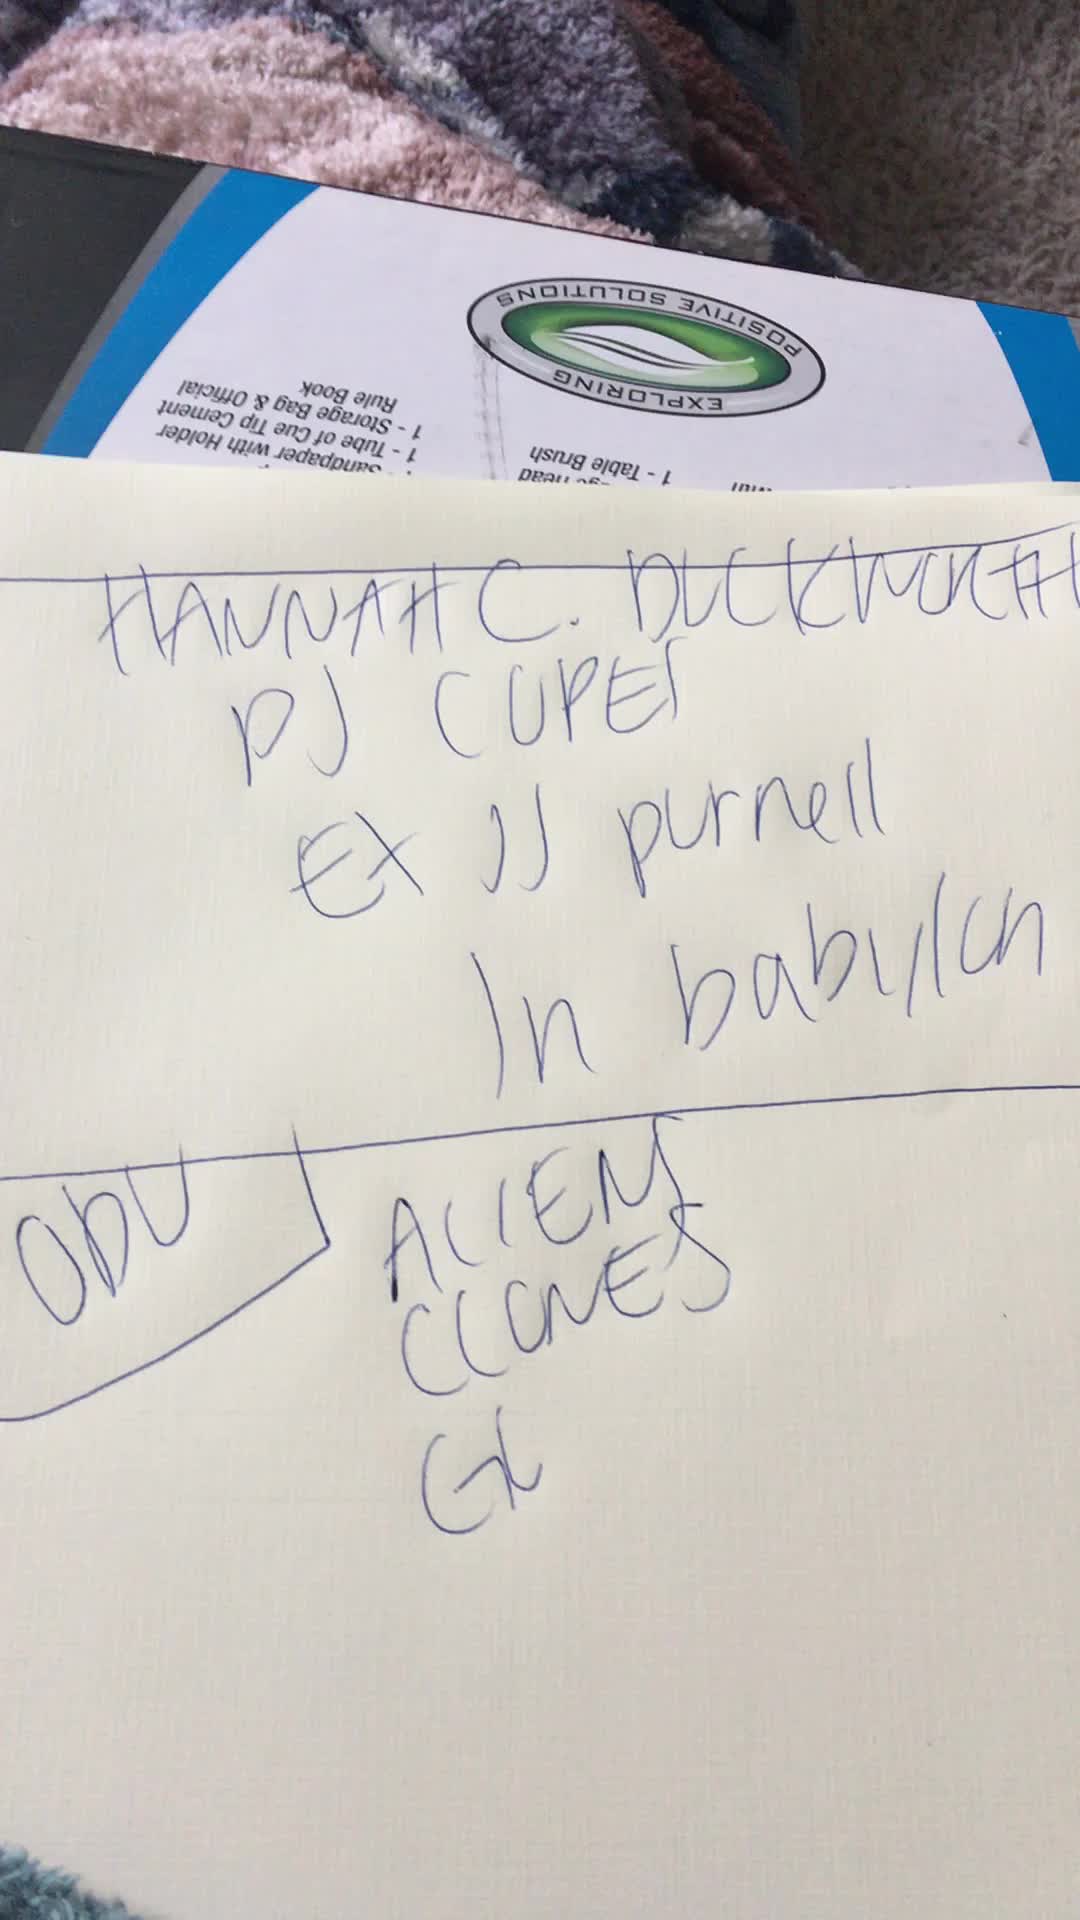 EXPLORING
POSITIVE SOLUTIONS
Sandpaper with Holder
1 - Tube of Cue Tip Cement
1 - Storage Bag & Official
Rule Book
1 - Table Brush
HANNAH C. DUCKWORTH
PJ
EX JJ purnell
In babylon
ODU
ALIEN
CLONES